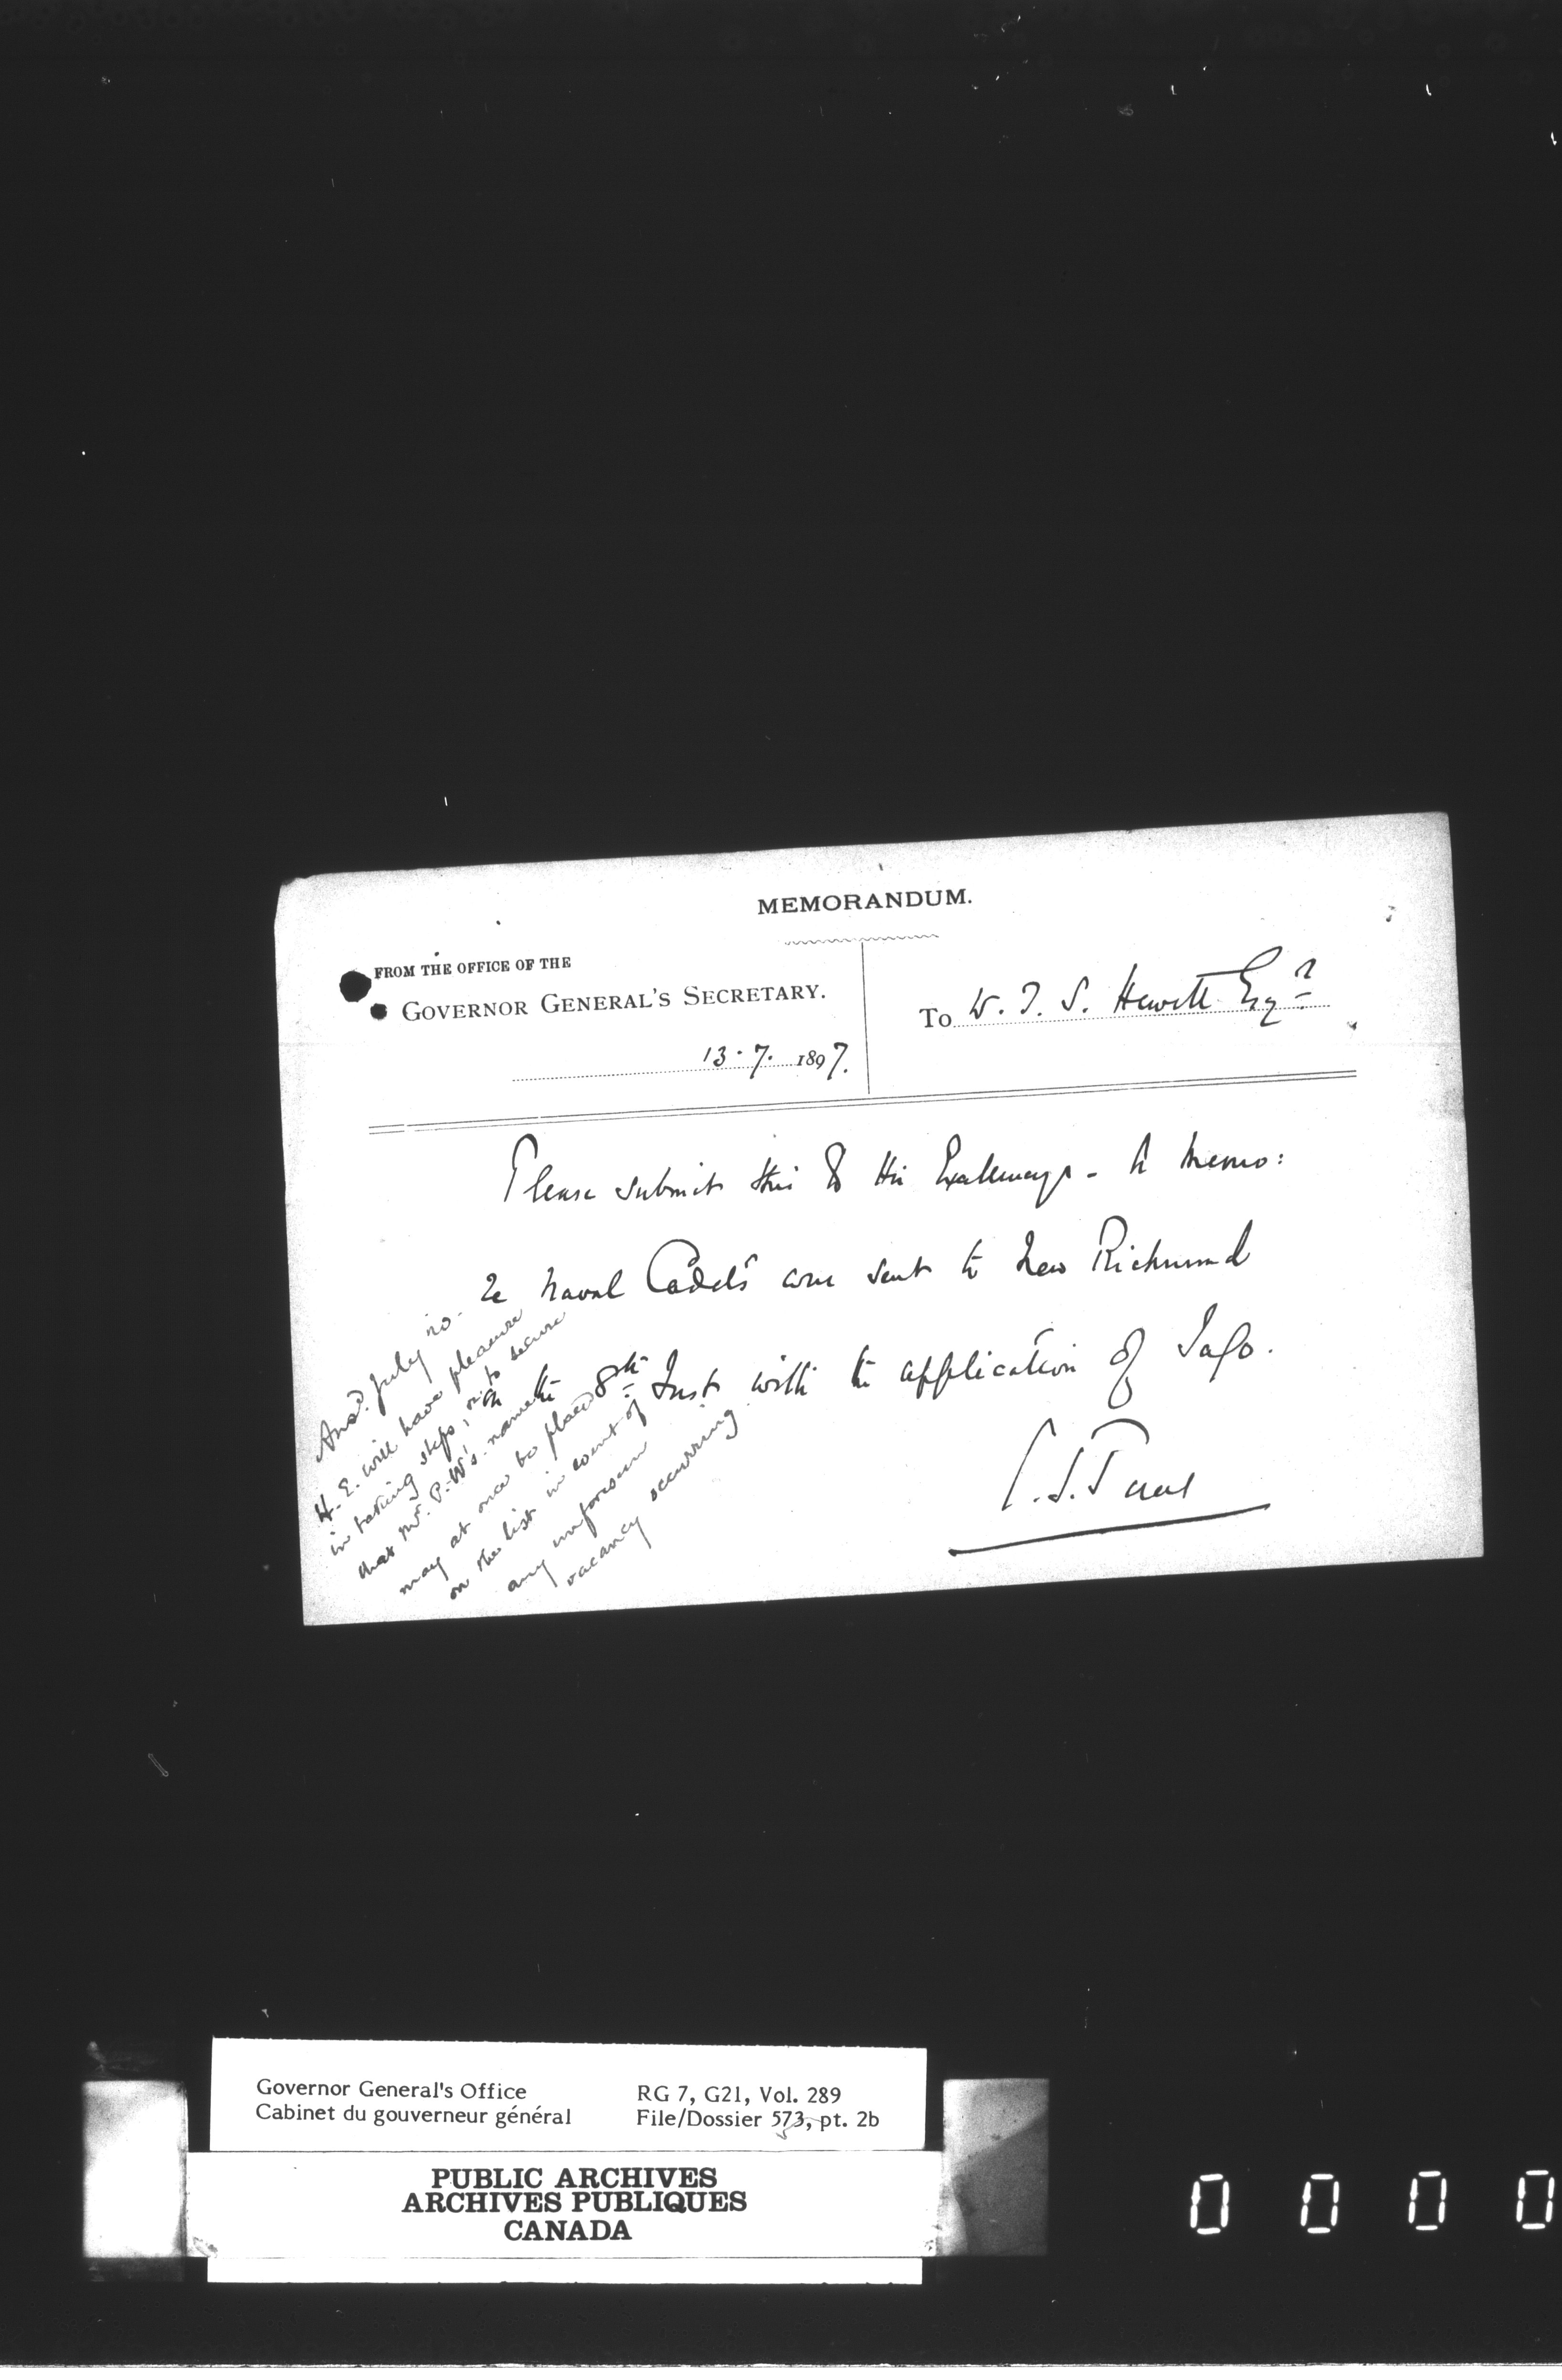 MEMORANDUM.
FROM THE OFFICE OF THE
GOVERNOR GENERAL'S SECRETARY.
13.7. 1897.
To W. T. S. Hewett Esqr
Please submit this to His Excellency - A memo:
re Naval Cadets was sent to New Richmond
on the 8th Inst with the application of Jago.
Ansd. July 20.
H. E. will have pleasure
in taking steps, to secure
that Mr. P.-W's. name
may at once be placed
on the list in event of
any unforeseen
vacancy occurring.
Governor General's Office
Cabinet du gouverneur général
RG 7, G21, Vol. 289
File/Dossier 573, pt. 2b
PUBLIC ARCHIVES
ARCHIVES PUBLIQUES
CANADA
0 0 0 0